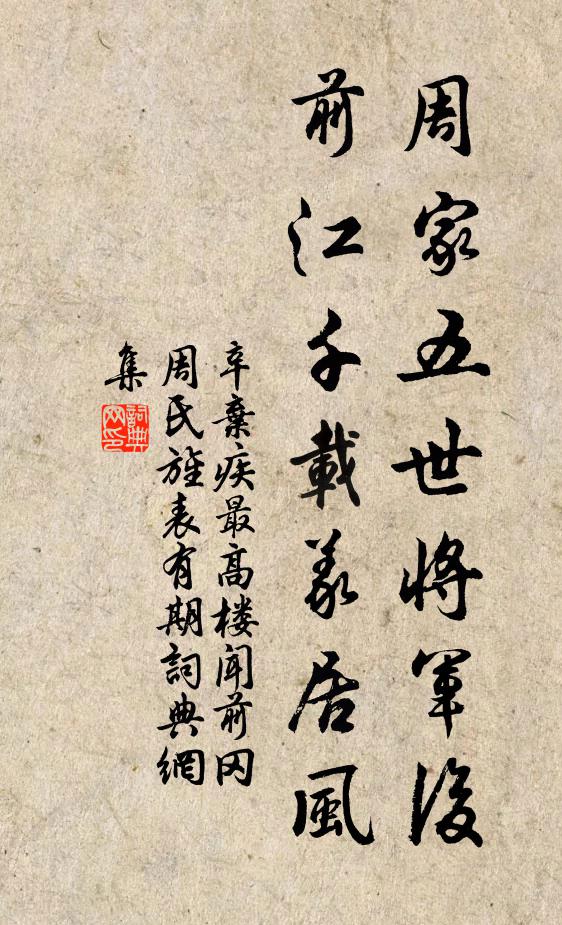 周家五世將軍後
前江千載義居風
辛棄疾最高楼闻前冈
周氏旌表有期詞典網
集
詞典
网印